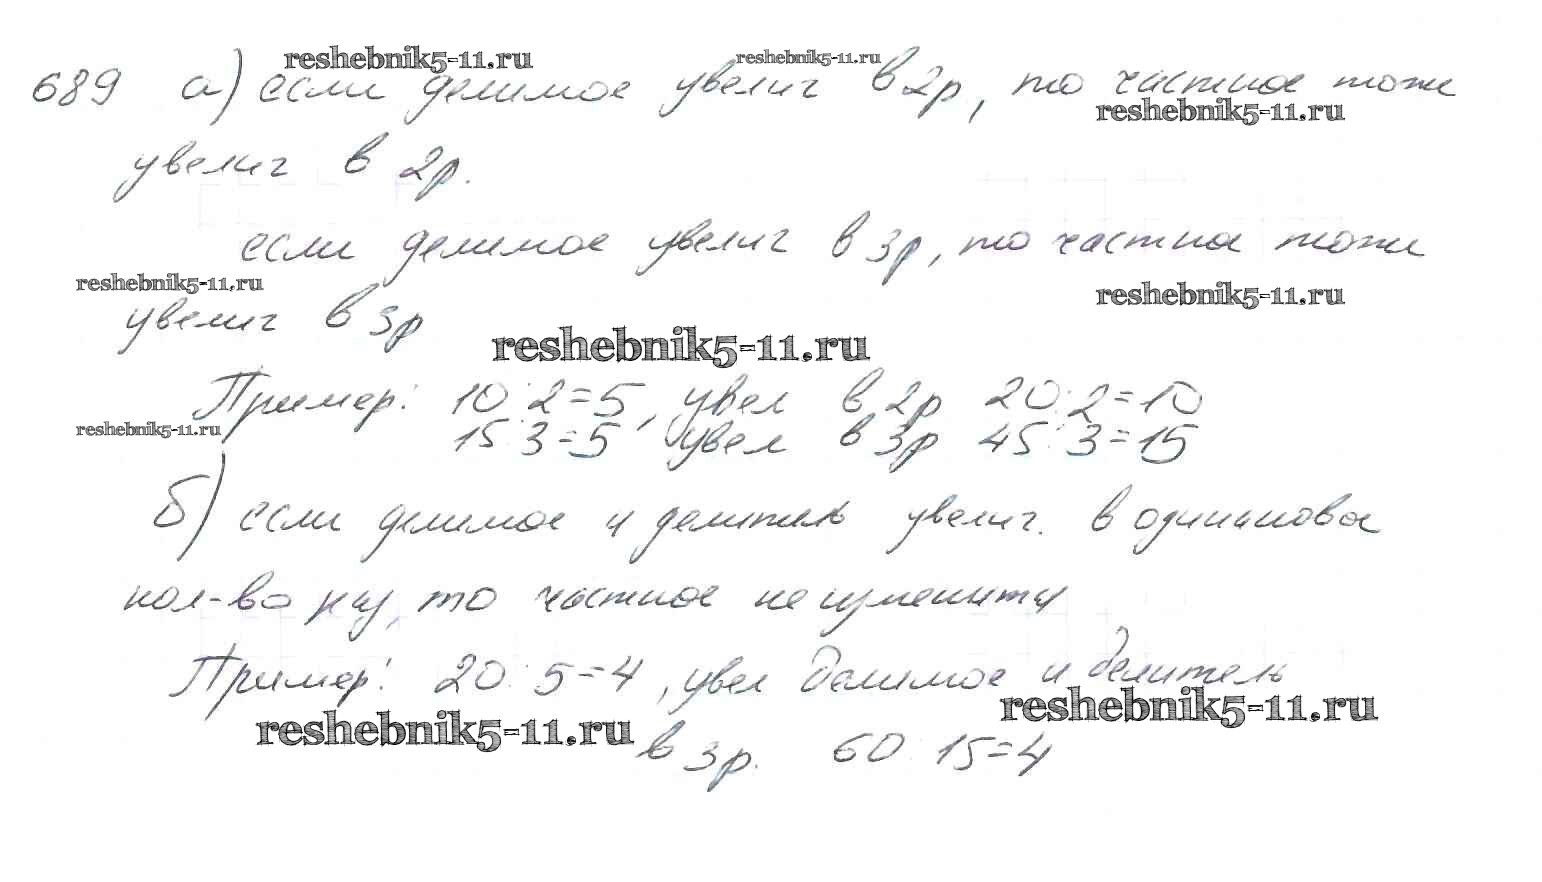 reshebnik5-11.ru reshebnik5-11.ru
689 а) если делимое увелич в 2р, то частное тоже
reshebnik5-11.ru
увелич в 2р.
если делимое увелич в 3р, то частное тоже
reshebnik5-11.ru reshebnik5-11.ru
увелич в 3р
reshebnik5-11.ru
Пример: 10:2=5, увел в 2р 20:2=10
reshebnik5-11.ru
15:3=5 увел в 3р 45:3=15
б) если делимое и делитель увелич. в одинаковое
кол-во раз, то частное не изменится
Пример: 20:5=4, увел делимое и делитель
reshebnik5-11.ru reshebnik5-11.ru
в 3р. 60:15=4